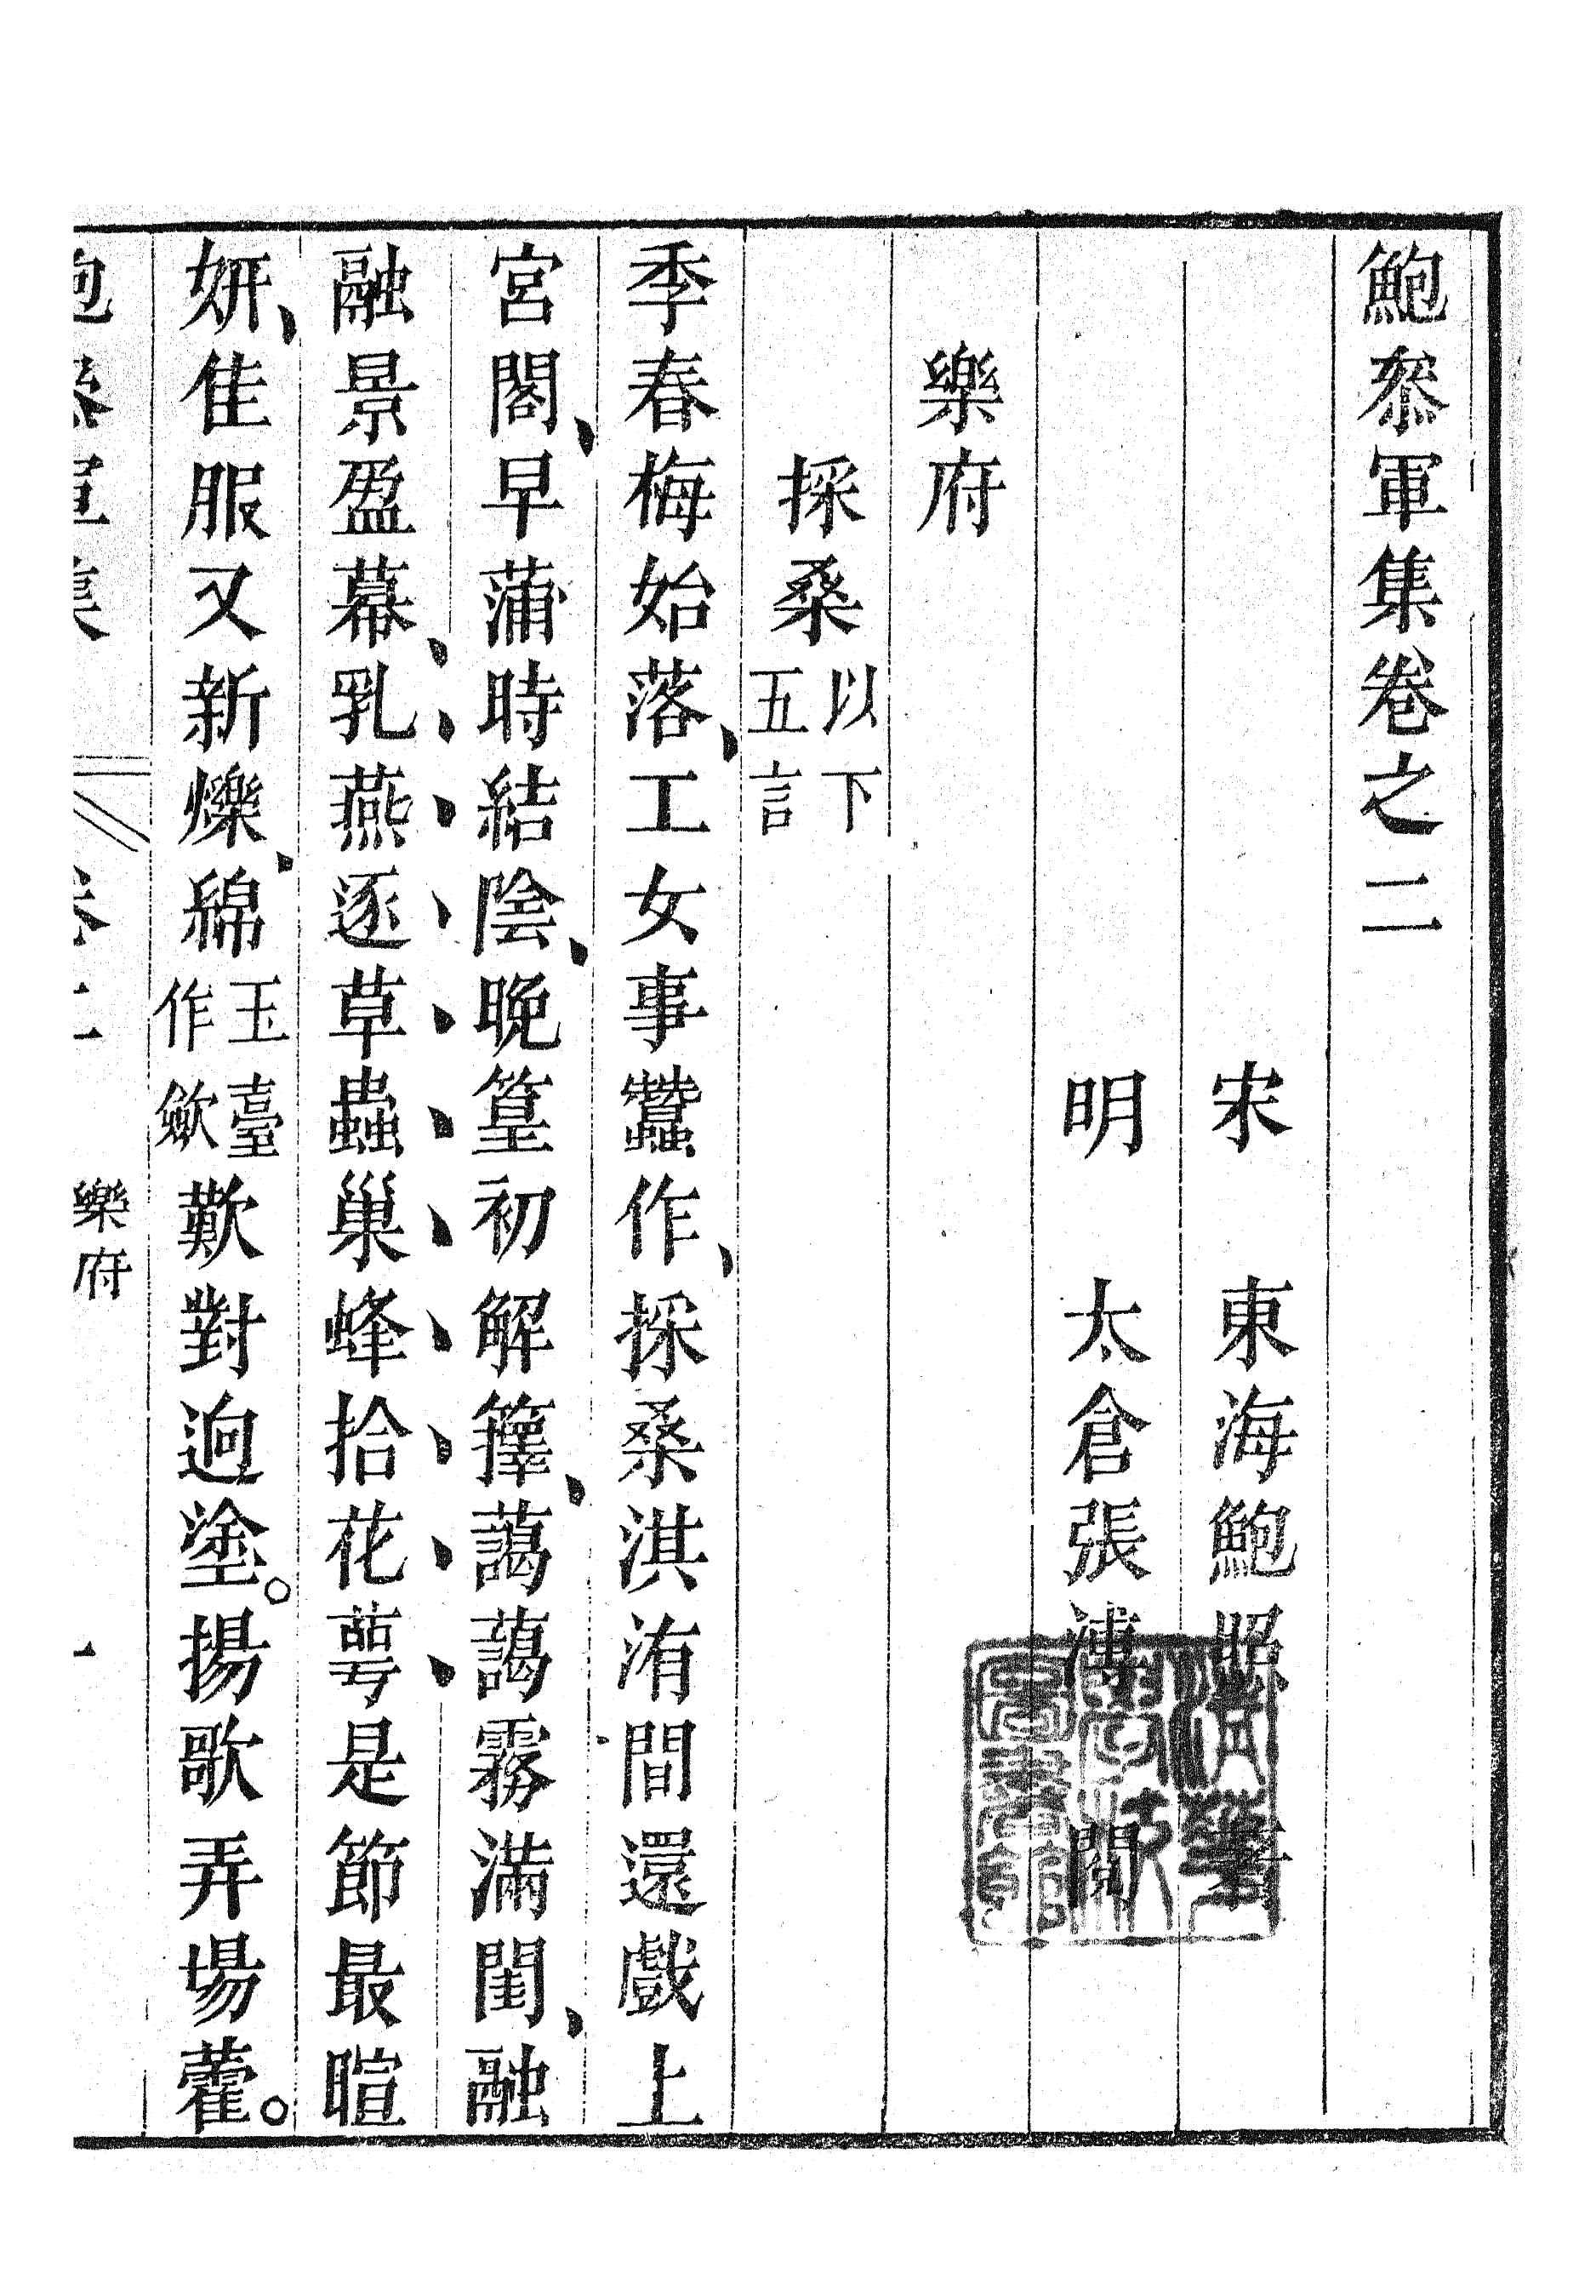 鮑叅軍集卷之二
宋　東海鮑照著
明　太倉張溥閱
樂府
採桑以下五言
季春梅始落工女事蠶作採桑淇洧間還戲上
宮閣早蒲時結陰晚篁初解籜藹藹霧滿閨融
融景盈幕乳燕逐草蟲巢蜂拾花萼是節最暄
妍隹服又新爍綿玉臺作歛歎對迥塗揚歌弄場藿
鮑叅軍集　卷二　樂府　一